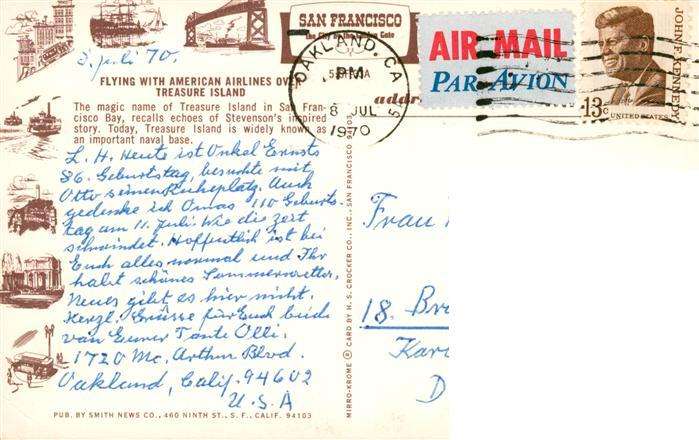 SAN FRANCISCO
The City by the Golden Gate
AIR MAIL
PAR AVION
JOHN F. KENNEDY
13c
UNITED STATES
OAKLAND, CA
PM
8 JUL
1970
8. Juli 70.
FLYING WITH AMERICAN AIRLINES OVER
TREASURE ISLAND
addr
The magic name of Treasure Island in San Fran-
cisco Bay, recalls echoes of Stevenson's inspired
story. Today, Treasure Island is widely known as
an important naval base.
L. H. Heute ist Onkel Ernsts
86. Geburtstag, besuchte mit
Otto seinen Ruheplatz. Auch
gedenke ich Omas 110 Geburts-
tag am 11. Juli. Wie die Zeit
schwindet. Hoffentlich ist bei
Euch alles normal und Ihr
habt schönes Sommerwetter.
Neues gibt es hier nicht.
Herzl. Grüsse für Euch beide
von Eurer Tante Olli.
1720 Mc. Arthur Blvd.
Oakland, Calif. 94602
U.S.A
Frau
18. Br
Kar
D
MIRRO-KROME ® CARD BY H. S. CROCKER CO., INC., SAN FRANCISCO
PUB. BY SMITH NEWS CO., 460 NINTH ST., S. F., CALIF. 94103